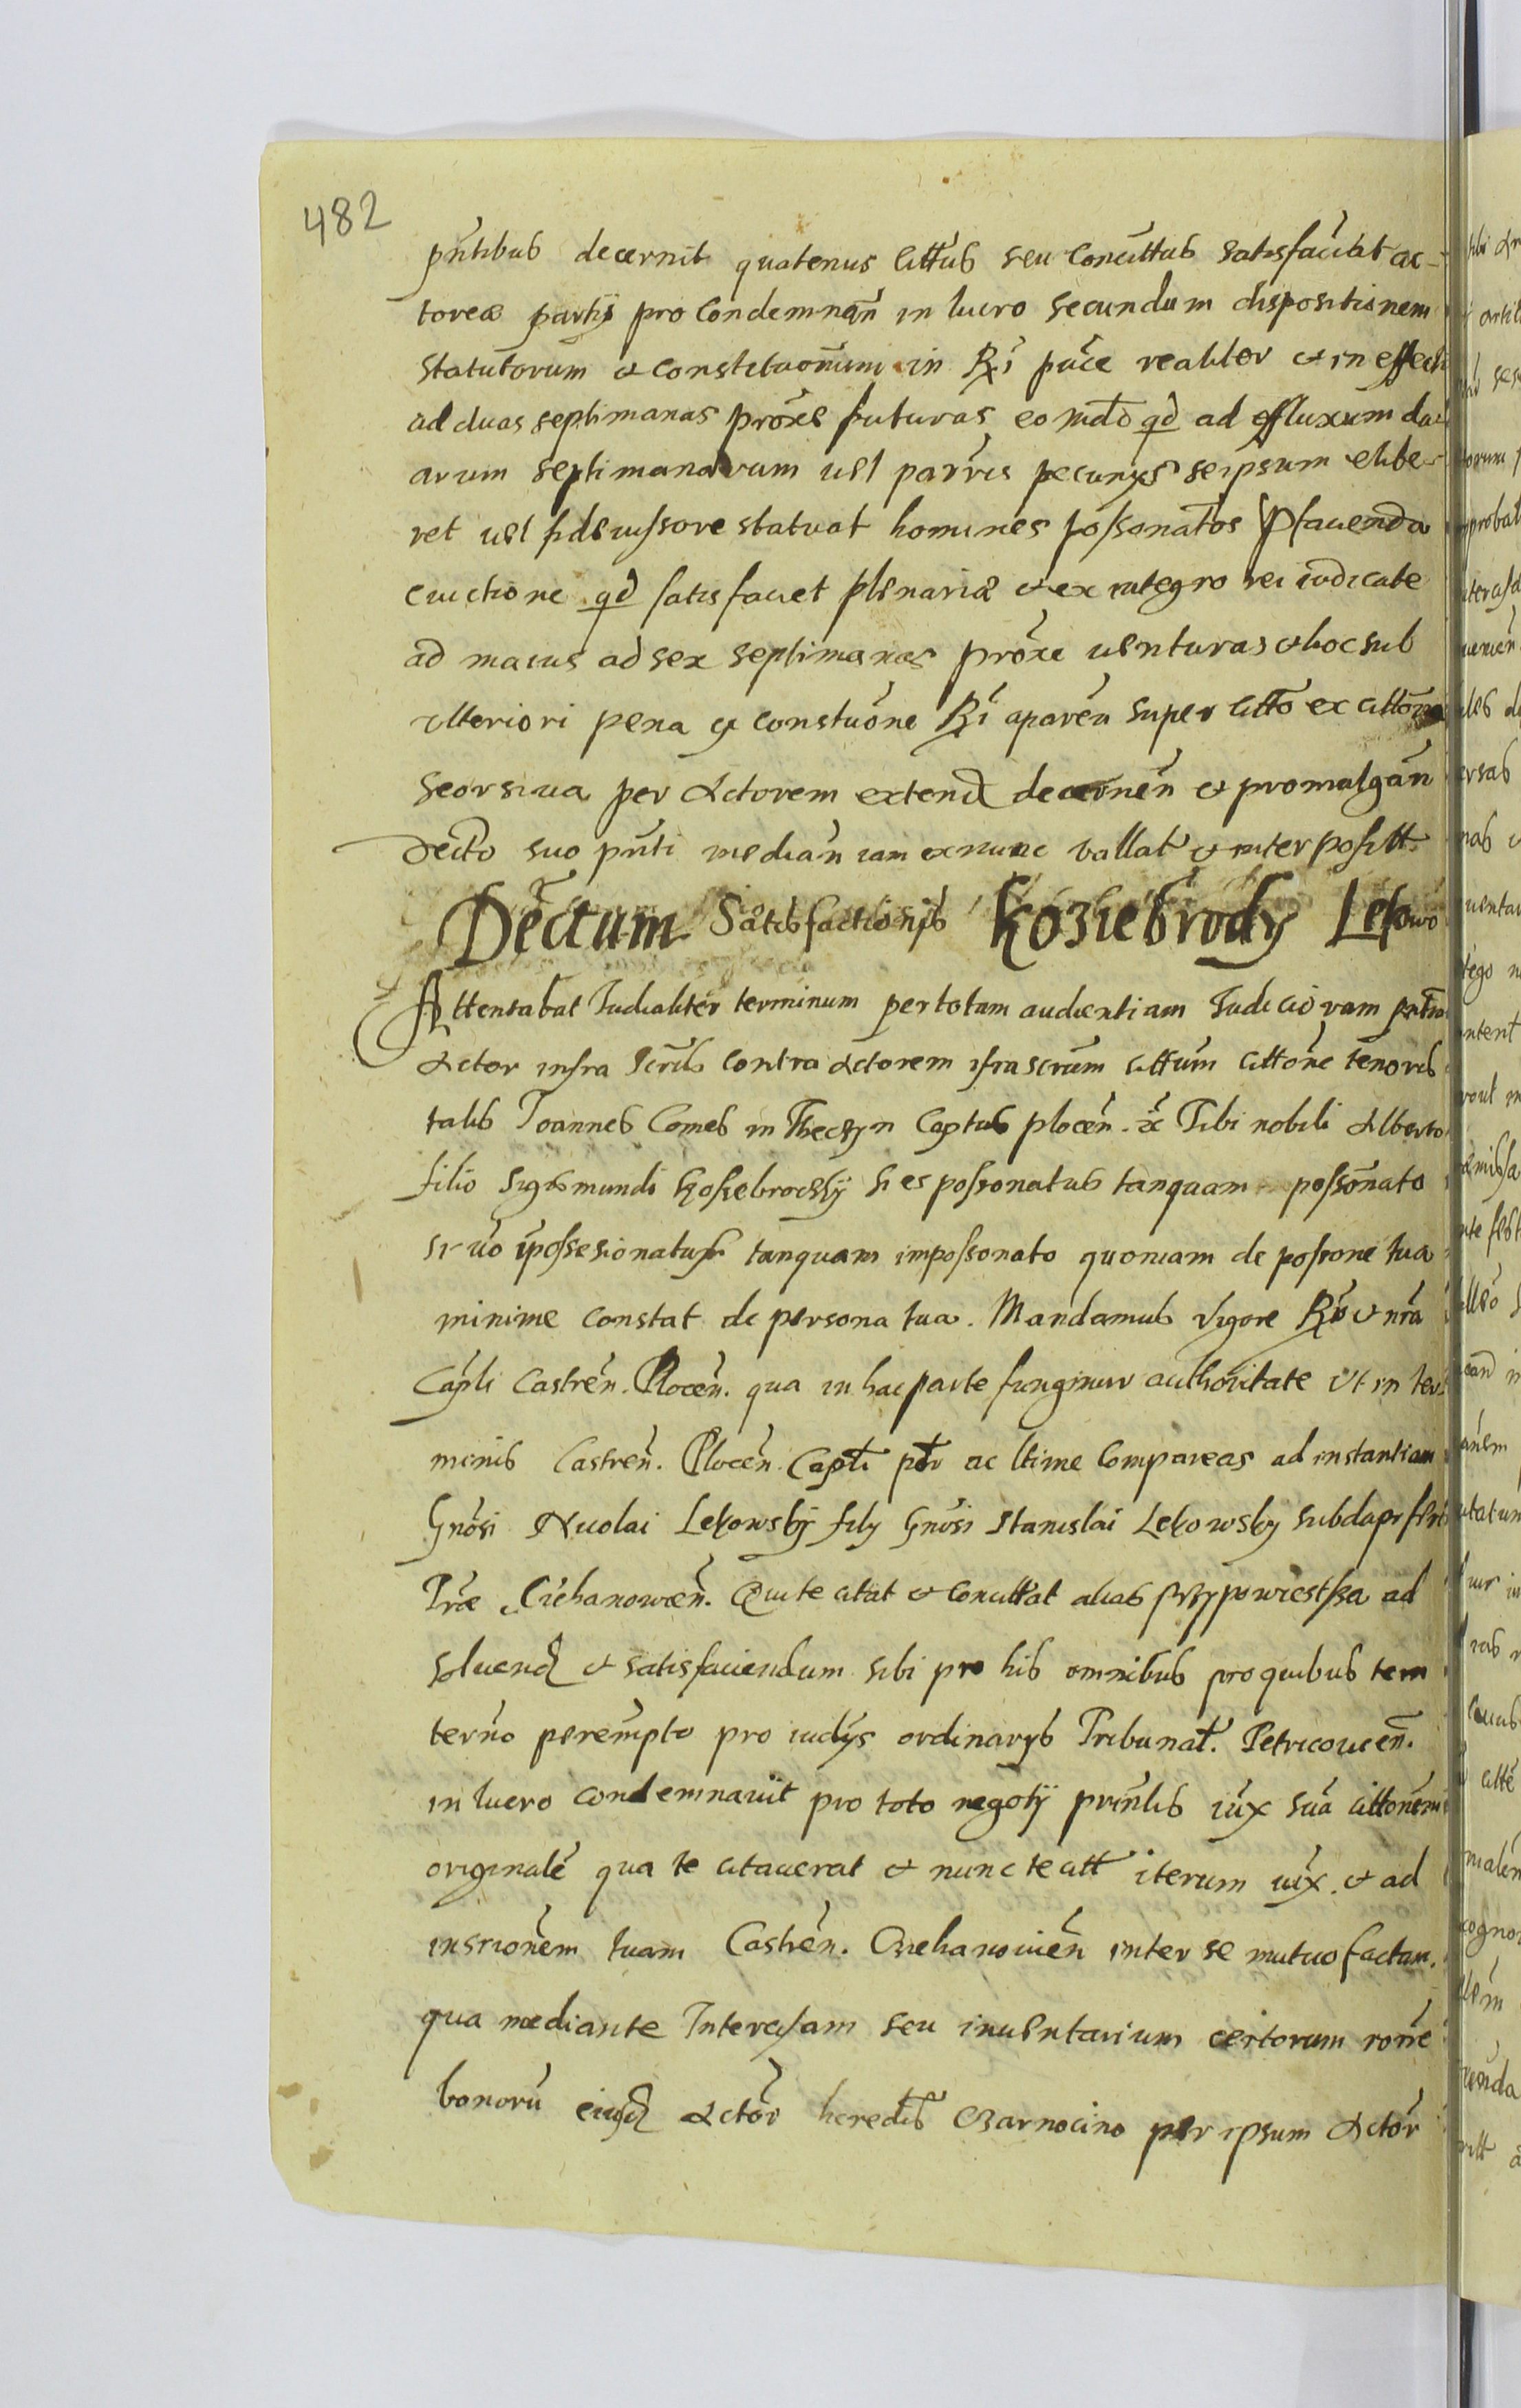 482
pntibus decernit quatenus cittus seu concittus satisfaciat ac-
toreæ partij pro condemnan in lucro secundum dispositionem
statutorum & constituonum in Ri puce realiter & in effectu
ad duas septimanas proxe futuras eo mdo qd ad effluxum du
arum septimanarum uel parris pecunys seipsum elibe-
ret uel fideiussore statuat homines possonatos faciendæ
euictione qd satisfaciet plenariæ & ex integro rei iudicate
ad maius ad sex septimanas proxe uenturas & hoc sub
ulteriori pena ex constuone Ri aparen super citto ex cittone
seorsiua per Actorem extend decernen & promulgan
decto suo pnti median iam exnunc vallat & interposilt
Decretum Satisfactionis Koziebrody Lekowo
Attentabat Iudicaliter terminum per totam audientiam Iudiciorum pntium
Actor infra scrits contra Actorem ifrascrtum cittum cittone tenoris
talis Ioannes Comes in Theczyn Captus plocen. &c Tibi nobili Alberto
filio Sigismundi Kossebrodsky si es possonatus tanquam possonato
si uo ipossesionatus tanquam impossonato quoniam de possone tua
minime constat de persona tua. Mandamus vigore Rio & nra
Capli Castren. Plocen. qua in hac parte fungimur authoritate Vt in ter
minis Castren. Plocen. Capli ptr ac ltime Compareas ad instantiam
Gnosi Nicolai Lekowskij fily Gnosi Stanislai Lekowsky subdapifferi
Træ Ciehanowen. Qui te citat & concittat alias przypowiestka ad
soluend & satisfaciendum sibi pro his omnibus pro quibus tem
terno perempto pro iudys ordinarys Tribunal. Petricouien.
in lucro condemnauit pro toto negoty prinlis iux sua cittonem
originale qua te citauerat & nunc te citt iterum iux. & ad
inscrionem tuam Castren. Ciehanouien inter se mutuo factam.
qua mediante Intercisam seu inuentarium certorum rone
bonoru eiusd Actor heredis Czarnocino per ipsum Actor